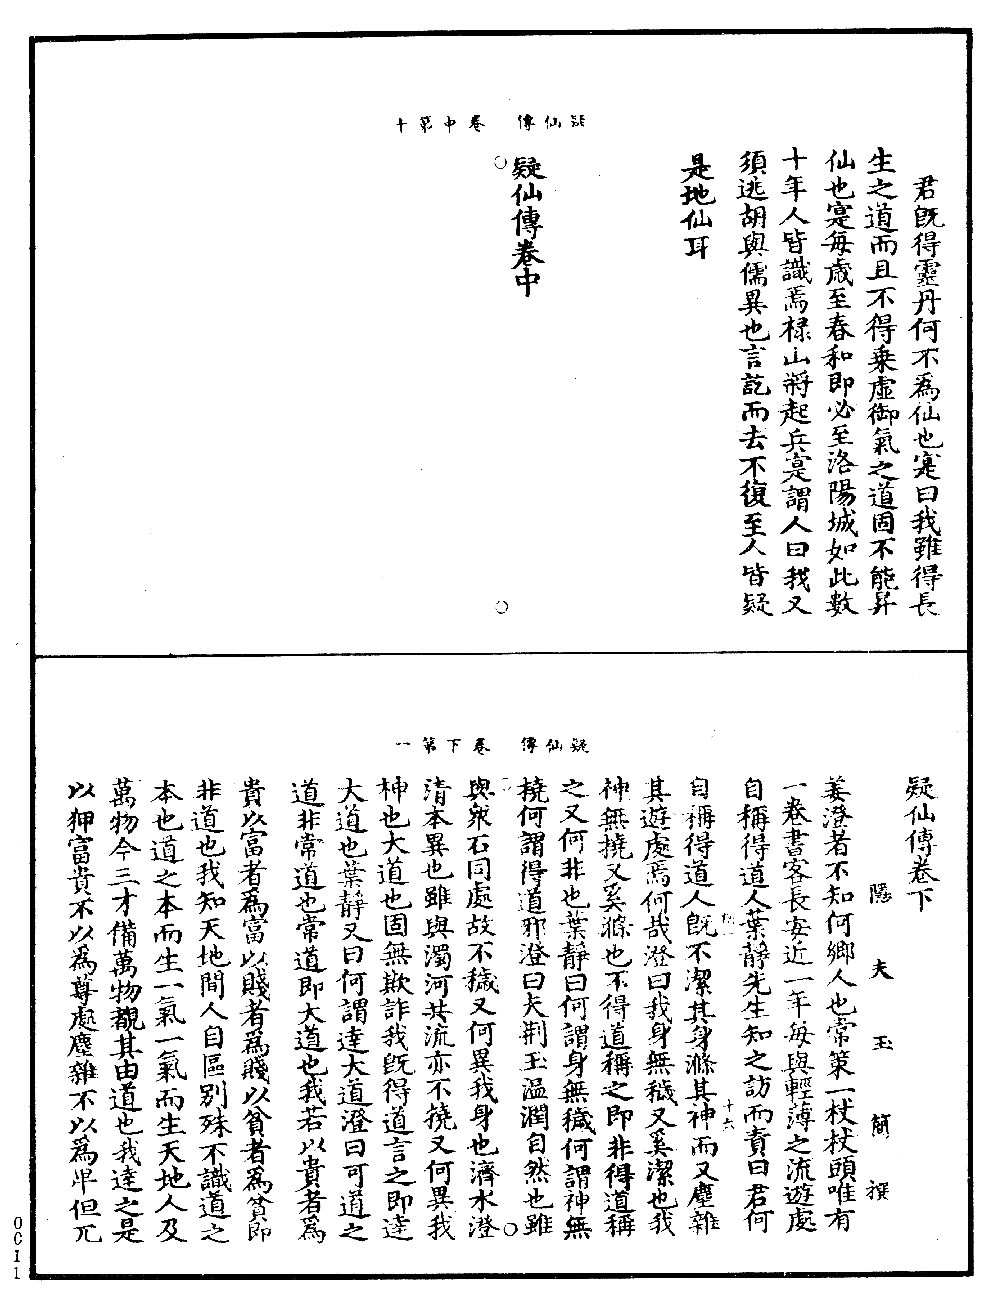 疑仙傳　卷中第十
君既得靈丹何不為仙也寔曰我雖得長
生之道而且不得乗虛御氣之道固不能昇
仙也寔每歲至春和即必至洛陽城如此數
十年人皆識焉禄山將起兵寔謂人曰我又
須逃胡與儒異也言訖而去不復至人皆疑
是地仙耳
疑仙傳卷中
疑仙傳　卷下第一
疑仙傳卷下
隱夫玉簡撰
姜澄者不知何鄉人也常策一杖杖頭唯有
一卷書客長安近一年每與輕薄之流遊處
自稱得道人葉静先生知之訪而責曰君何
自稱得道人既不潔其身滌其神而又塵雜
其遊處焉何哉澄曰我身無穢又奚潔也我
神無撓又奚滌也不得道稱之即非得道稱
之又何非也葉静曰何謂身無穢何謂神無
撓何謂得道邪澄曰夫荆玉温潤自然也雖
與衆石同處故不穢又何異我身也濟水澄
清本異也雖與濁河共流亦不撓又何異我
神也大道也固無欺詐我既得道言之即達
大道也葉静又曰何謂達大道澄曰可道之
道非常道也常道即大道也我若以貴者為
貴以富者為富以賤者為賤以貧者為貧即
非道也我知天地間人自區别殊不識道之
本也道之本而生一氣一氣而生天地人及
萬物今三才備萬物覩其由道也我達之是
以狎富貴不以為尊處塵雜不以為卑但兀
十六
0C11